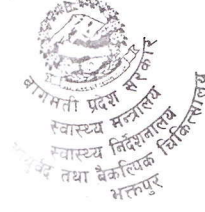 बागमती प्रदेश सरकार
स्वास्थ्य मन्त्रालय
स्वास्थ्य निर्देशनालय
तथा बैकल्पिक चिकित्सालय
भक्तपुर